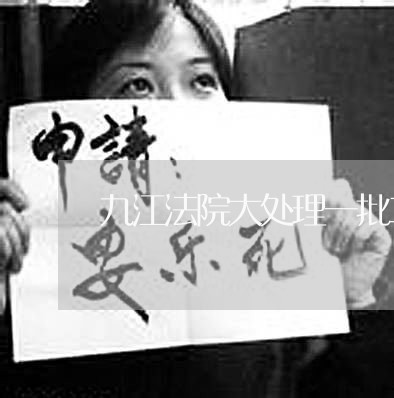 申請：
九江法院大处理一批
安乐死